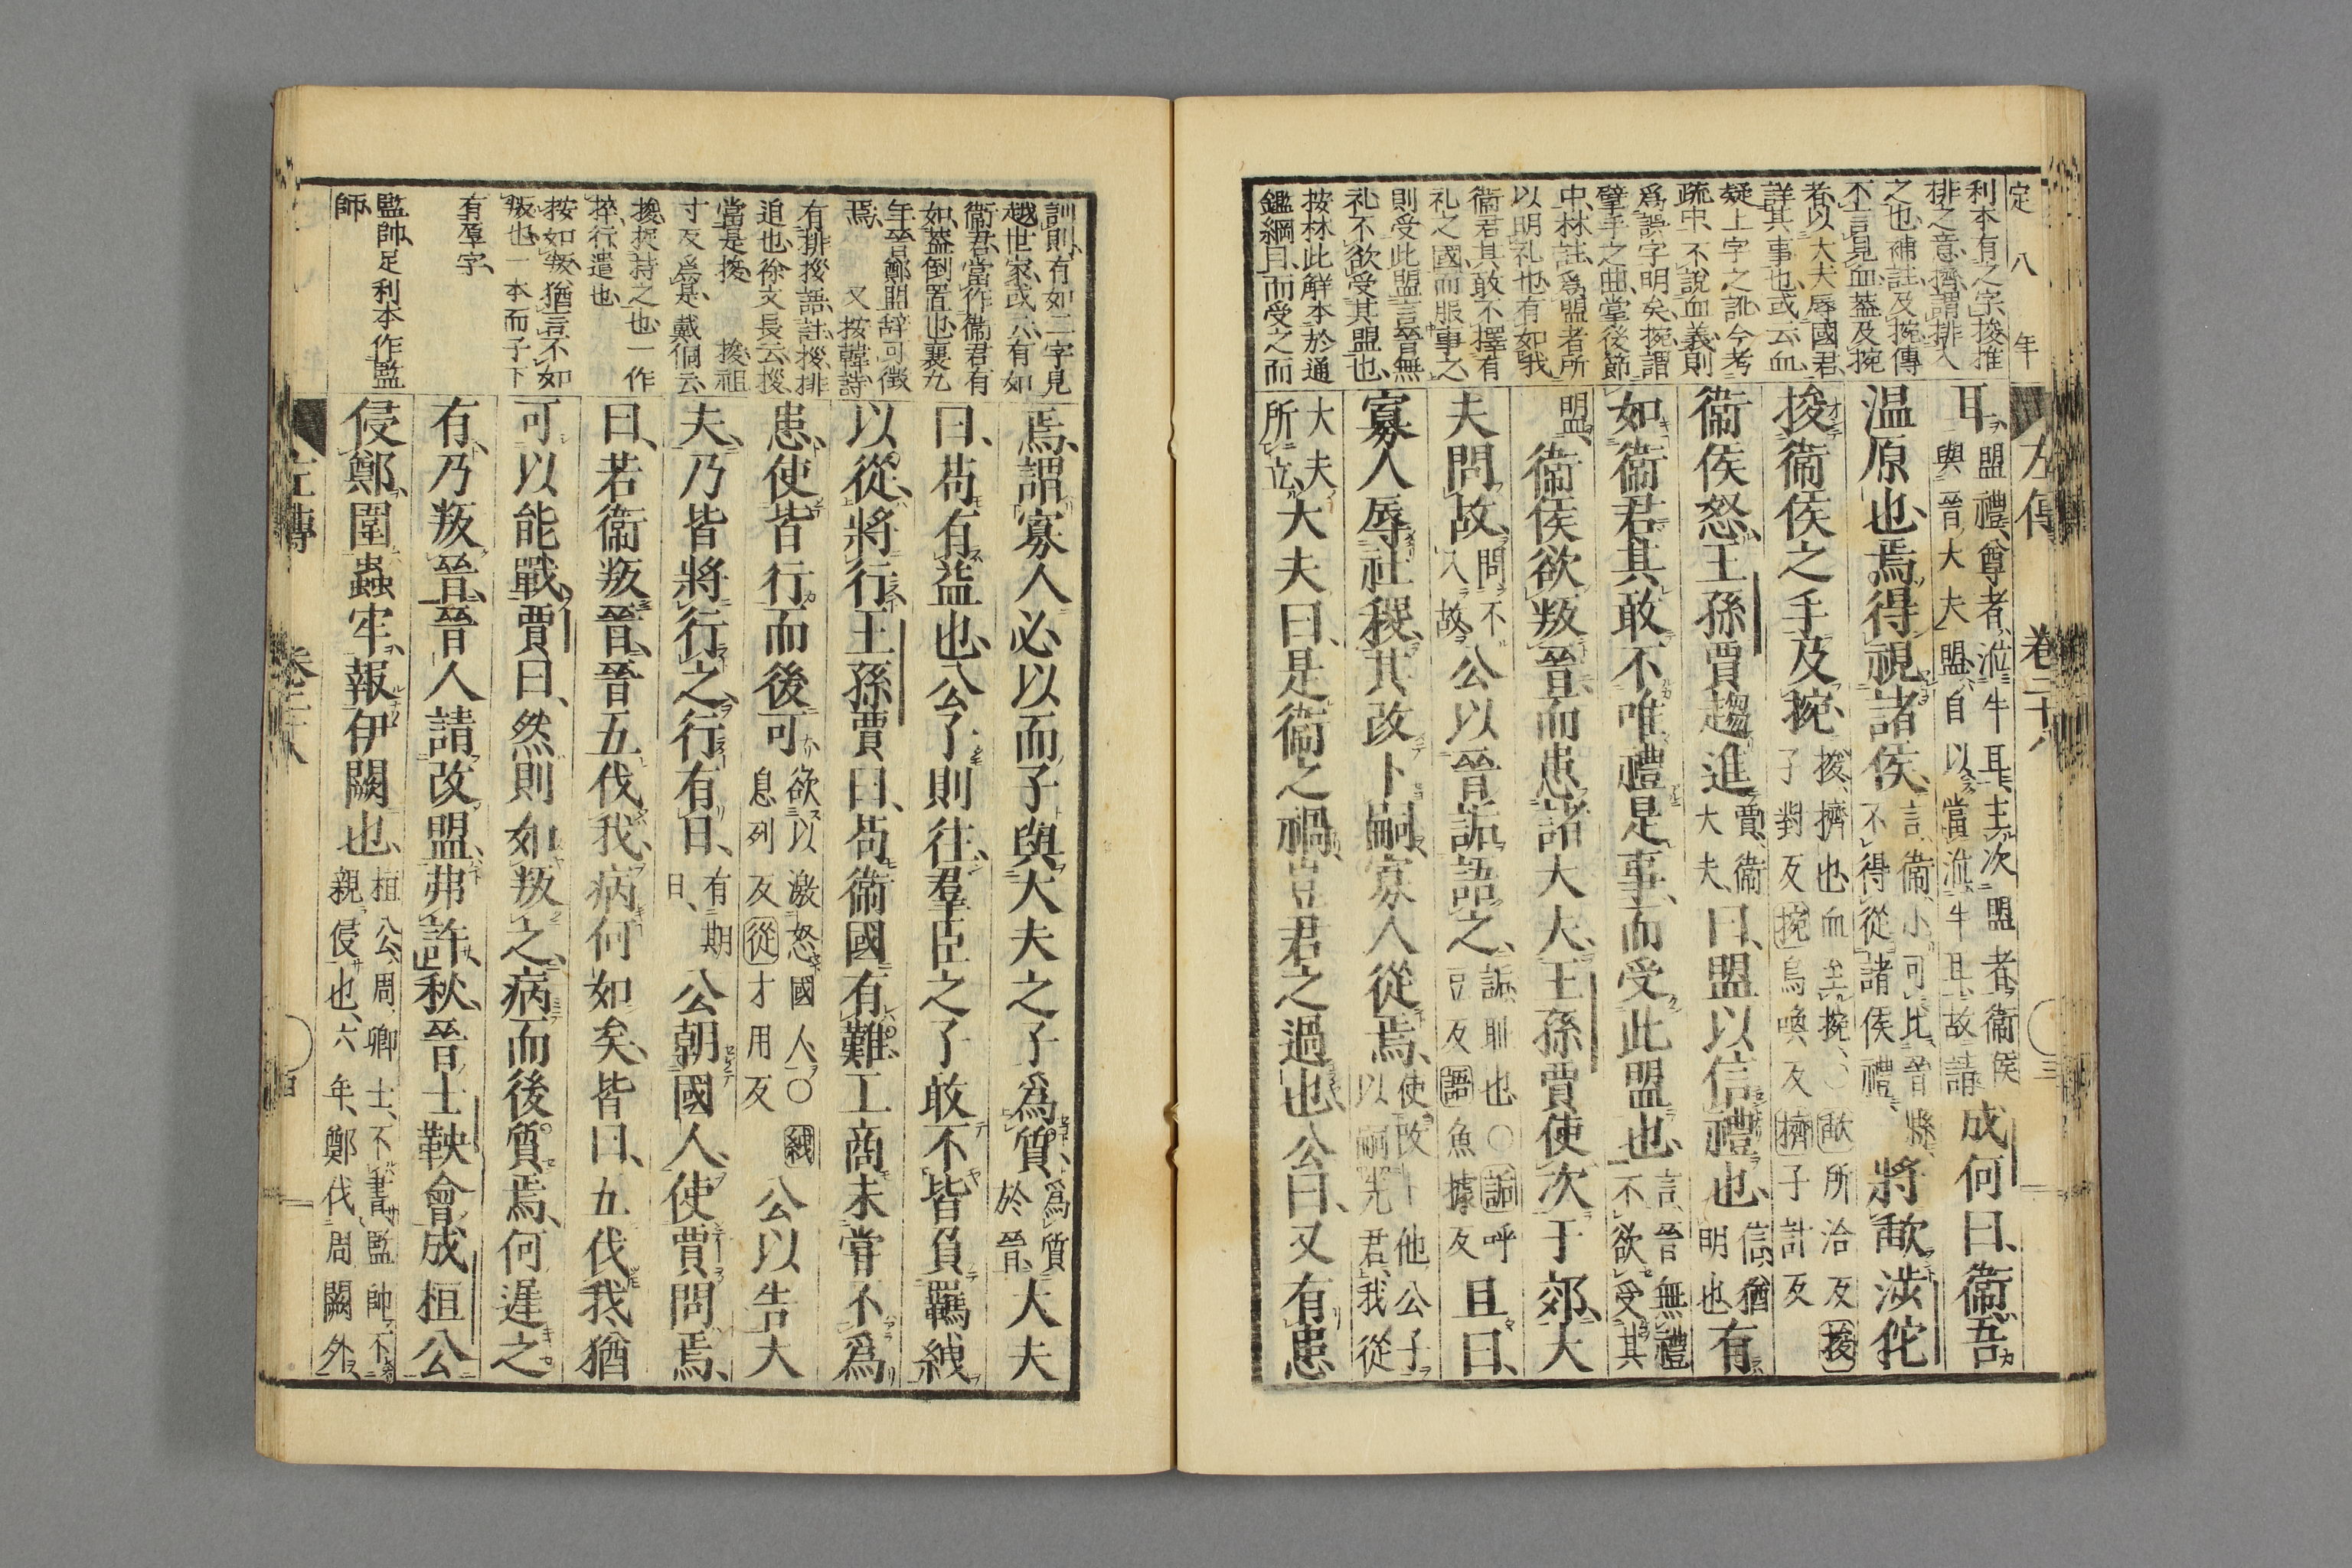 定八年
利本有之字捘推
排之意擠謂排入
之也補註及捥傳
不言見血蓋及捥
者以大夫辱國君
詳其事也或云血
疑上字之訛今考
疏中不說血義則
爲誤字明矣捥謂
擘手之曲掌後節
中林註爲盟者所
以明礼也有如我
衞君其敢不擇有
礼之國而服事之
則受此盟言晉無
礼不欲受其盟也
按林此解本於通
鑑綱目而受之而
左傳 卷二十八 三
耳
盟禮尊者涖牛耳主次盟者衞侯
與晉大夫盟自以當涖牛耳故請
成何曰衞吾
温原也焉得視諸侯
言衞小可比晉縣
不得從諸侯禮
將歃涉佗
捘衞侯之手及捥
捘擠也血至捥○歃所洽反捘
子對反捥烏喚反擠子計反
衞侯怒王孫賈趨進
賈衞
大夫
曰盟以信禮也
信猶
明也
有
如衞君其敢不唯禮是事而受此盟也
言晉無禮
不欲受其
盟
衞侯欲叛晉而患諸大夫王孫賈使次于郊大
夫問故
問不
入故
公以晉詬語之
詬恥也○詬呼
豆反語魚據反
且曰
寡人辱社稷其改卜嗣寡人從焉
使改卜他公子
以嗣先君我從
大夫
所立
大夫曰是衞之禍豈君之過也公曰又有患
訓則有如二字見
越世家或云有如
衞君當作衞君有
如蓋倒置也襄九
年晉鄭盟辭可徵
焉 又按韓詩
有排捘語註捘排
迫也徐文長云捘
當是捘 捘祖
寸反爲是戴侗云
捘捉持之也一作
捽行遣也
按如叛猶言不如
叛也一本而子下
有辱字
監帥足利本作監
師
焉謂寡人必以而子與大夫之子爲質
爲質
於晉
大夫
曰苟有益也公子則往羣臣之子敢不皆負羈絏
以從將行王孫賈曰苟衞國有難工商未嘗不爲
患使皆行而後可
欲以激怒國人○絏
息列反從才用反
公以告大
夫乃皆將行之行有日
有期
日
公朝國人使賈問焉
曰若衞叛晉晉五伐我病何如矣皆曰五伐我猶
可以能戰賈曰然則如叛之病而後質焉何遲之
有乃叛晉晉人請改盟弗許秋晉士鞅會成桓公
侵鄭圍蟲牢報伊闕也
桓公周卿士不書監帥不
親侵也六年鄭伐周闕外
左傳 卷二十八 四